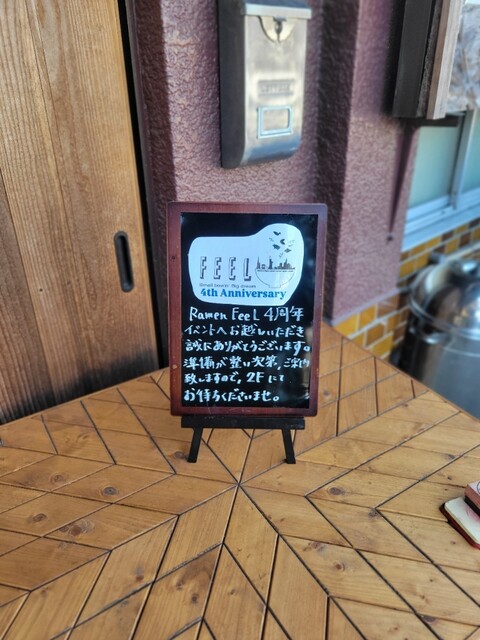 FEEL
Small bowls' Big dream
4th Anniversary
Ramen FeeL 4周年
イベントへお越しいただき
誠にありがとうございます。
準備が整い次第、ご案内
致しますので、2Fにて
お待ちくださいませ。